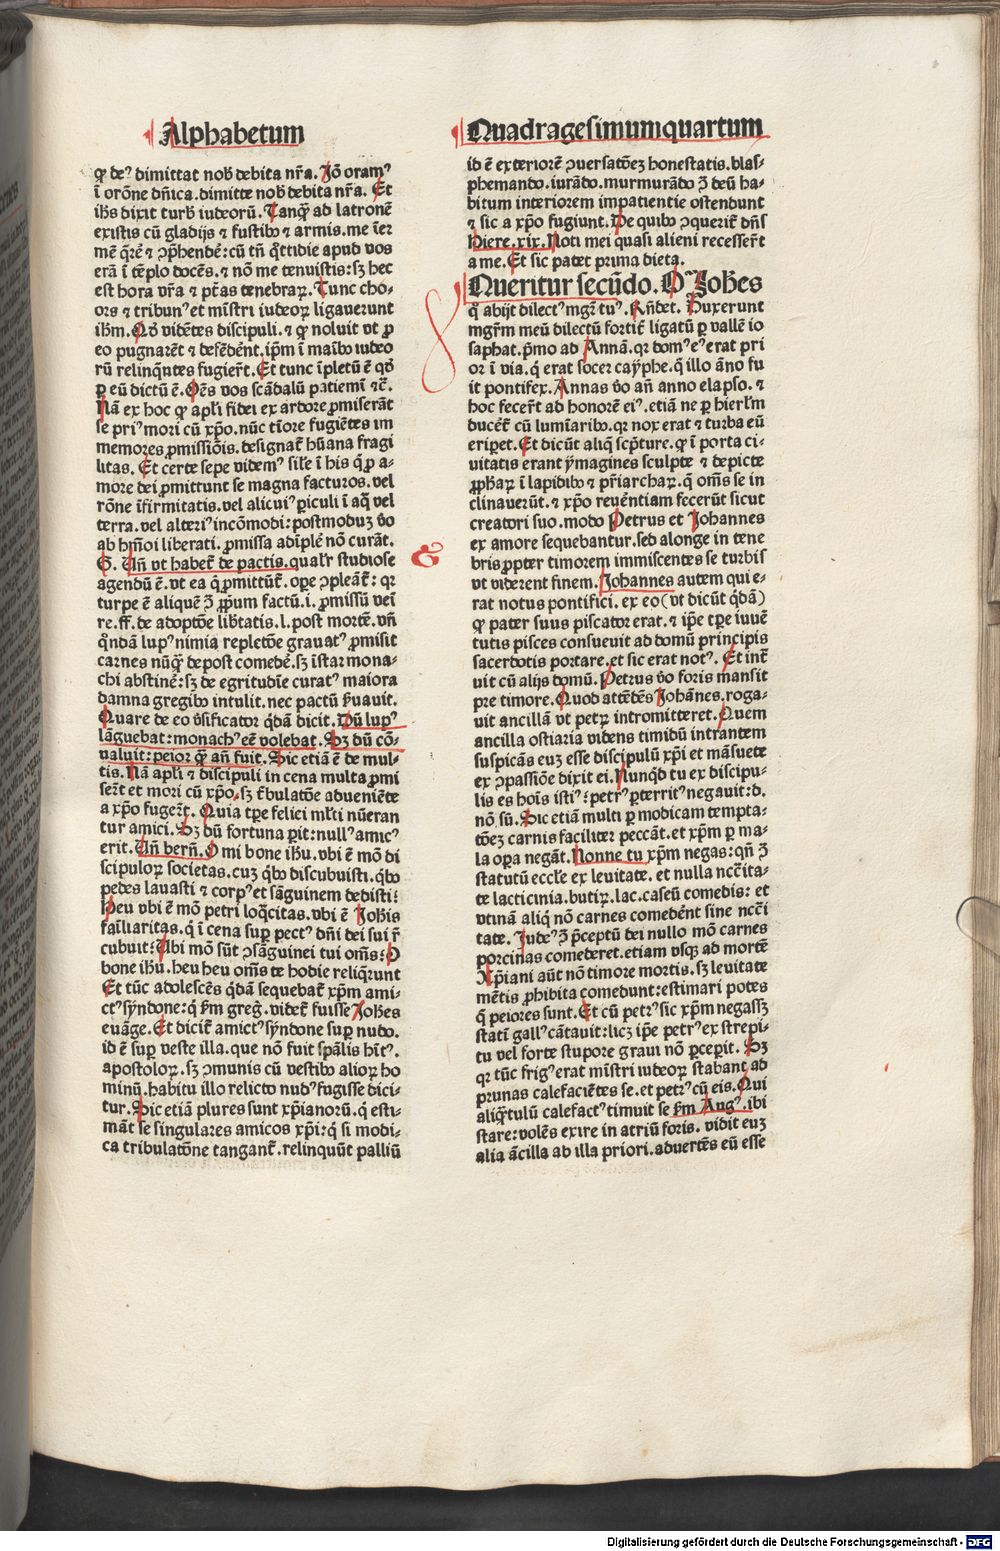 Alphabetum
Quadragesimumquartum
ꝙ deꝰ dimittat nob̄ debita nr̄a. Jō oramꝰ
ī orōne dn̄ica. dimitte nob̄ debita nr̄a. Et
ih̄s dixit turb̄ iudeorū. Tanqȝ ad latronē
existis cū gladijs ⁊ fustibꝰ ⁊ armis. me īter
erā ī tēplo docēs. ⁊ nō me tenuistis: sȝ hec
est hora vr̄a ⁊ pt̄as tenebraꝝ. Tunc cho⸗
ors ⁊ tribunꝰ et mīstri iudeoꝝ ligauerunt
ih̄m. Qd̄ vidētes discipuli. ⁊ ꝙ noluit vt ꝓ
eo pugnarēt ⁊ defēdēnt. ip̄m ī maībꝰ iudeo
rū relinqn̄tes fugier̄t. Et tunc īpletū ē qd̄
ꝑ eū dictū ē. Oēs vos scādalū patiemī ⁊c̄.
Nā ex hoc ꝙ apl̄i fidei ex ardore ꝓmiserāt
se priꝰ mori cū xp̄o. nūc tīore fugiētes im
memores ꝓmissiōis. designat̄ hūana fragi
litas. Et certe sepe videmꝰ sil̄e ī his q̄ ꝓ a⸗
more dei ꝓmittunt se magna facturos. vel
rōne īfirmitatis. vel alicuiꝰ ꝑiculi ī aq̄ vel
terra. vel alteriꝰ incōmodi: postmoduȝ v̄o
ab hmōi liberati. ꝓmissa adīplē nō curāt.
G. Un̄ vt habet̄ de pactis. qualr̄ studiose
agendū ē. vt ea q̄ ꝓmittūt̄. oꝑe ↄpleāt̄: qꝛ
turpe ē aliquē ↄ̄ ꝓpͥum factū. i. ꝓmissū vēi
re. ff. de adoptōe libtatis. l. post mortē. vn̄
qn̄dā lupꝰ nimia repletōe grauatꝰ ꝓmisit
carnes nūqȝ de post comedē. sȝ īstar mona⸗
chi abstinē: sȝ de egritudīe curatꝰ maiora
damna gregibꝰ intulit. nec pactū ẜuauit.
Quare de eo v̄sificator qdā dicit. Dū lupꝰ
lāguebat: monachꝰ eē volebat. Sȝ dū cō⸗
ualuit: peior qȝ an̄ fuit. Sic etiā ē de mul⸗
tis. Nā apl̄i ⁊ discipuli in cena multa ꝓmi
ser̄t et mori cū xp̄o. sȝ tͥbulatōe adueniēte
a xp̄o fuger̄t. Quia tꝑe felici ml̄ti nūeran
tur amici. Sȝ dū fortuna ꝑit: nullꝰ amicꝰ
erit. Un̄ bern̄. O mi bone ih̄u. vbi ē mō di
scipuloꝝ societas. cuȝ qͥbꝰ discubuisti. qͥbꝰ
pedes lauasti ⁊ corpꝰ et sāguinem dedisti:
Heu vbi ē mō petri loq̄citas. vbi ē Joh̄is
fail̄iaritas. q̄ ī cena suꝑ pectꝰ dn̄i dei sui r̄
cubuit: Ubi mō sūt ↄsāguinei tui om̄s: O
bone ih̄u. heu heu om̄s te hodie reliq̄runt
Et tūc adolescēs qdā sequebat̄ xp̄m ami⸗
ctꝰ syndone: q̄ ẜm greḡ. videt̄ fuisse Joh̄es
euāge. Et dicit̄ amictꝰ syndone suꝑ nudo.
id ē suꝑ veste illa. que nō fuit spālis hīt̄ꝰ.
apostoloꝝ. sȝ ↄmunis cū vestibꝰ alioꝝ ho
minū. habitu illo relicto nudꝰ fugisse dici⸗
tur. Sic etiā plures sunt xp̄ianorū. q̄ esti⸗
māt se singulares amicos xp̄i: q̄ si modi⸗
ca tribulatōne tangant̄. relinquūt palliū
id ē exteriorē ↄuersatōeȝ honestatis. blas⸗
phemando. iurādo. murmurādo ↄ̄ deū ha⸗
bitum interiorem impatientie ostendunt
⁊ sic a xp̄o fugiunt. De quibꝰ ↄquerit̄ dn̄s
Hiere. xix. Noti mei quasi alieni recesser̄t
a me. Et sic patet prima dieta.
Queritur secūdo. Joh̄es
q̄ abijt dilectꝰ mgr̄ tuꝰ. Rn̄det. Duxerunt
mgr̄m meū dilectū fortit̄ ligatū ꝑ vallē io
saphat. pͥmo ad Annā. qꝛ domꝰ eꝰ erat pri
or ī via. q̄ erat socer cayphe. q̄ illo āno fu
it pontifex. Annas v̄o an̄ anno elapso. ⁊
hoc fecer̄t ad honorē eiꝰ. etiā ne ꝑ hierl̄m
ducēt̄ cū lumīaribꝰ. qꝛ nox erat ⁊ turba eū
eriꝑet. Et dicūt aliq̄ scpͥture. ꝙ ī porta ci⸗
uitatis erant ymagines sculpte ⁊ depicte
ꝓph̄aꝝ ī lapidibꝰ ⁊ pr̄iarchaꝝ. q̄ om̄s se in
clinauerūt. ⁊ xp̄o reuēntiam fecerūt sicut
creatori suo. modo Petrus et Johannes
ex amore sequebantur. sed alonge in tene
bris ꝓpter timorem immiscentes se turbis
vt viderent finem. Johannes autem qui e⸗
rat notus pontifici. ex eo (vt dicūt qdā)
ꝙ pater suus piscator erat. ⁊ ip̄e tꝑe iuuē
tutis pisces consueuit ad domū principis
sacerdotis portare. et sic erat notꝰ. Et int̄
uit cū alijs domū. Petrus v̄o foris mansit
pre timore. Quod attēdēs Johānes. roga⸗
uit ancillā vt petꝝ intromitteret. Quem
ancilla ostiaria videns timidū intrantem
suspicās euȝ esse discipulū xp̄i et māsuete
ex ↄpassiōe dixit ei. Nunqd tu ex discipu⸗
lis es hoīs istiꝰ: petrꝰ ꝑterritꝰ negauit: d.
nō sū. Sic etiā multi ꝑ modicam tempta⸗
tōeȝ carnis faciliter peccāt. et xp̄m ꝑ ma⸗
la oꝑa negāt. Nonne tu xp̄m negas: qn̄ ↄ̄
statutū eccl̄e ex leuitate. et nulla nccͥita⸗
te lacticinia. butiꝝ. lac. caseū comedis: et
vtinā aliq̄ nō carnes comedēnt sine nccͥi
tate. Jude ↄ̄ p̄ceptū dei nullo mō carnes
porcinas comederet. etiam vsqȝ ad mortē
Xp̄iani aūt nō timore mortis. sȝ leuitate
mētis ꝓhibita comedunt: estimari potes
q̄ peiores sunt. Et cū petrꝰ sic xp̄m negassȝ
statī gallꝰ cātauit: licȝ ip̄e petrꝰ ex strepi⸗
tu vel forte stupore graui nō ꝑceꝑit. Sȝ
qꝛ tūc frigꝰ erat mīstri iudeoꝝ stabant ad
prunas calefaciētes se. et petrꝰ cū eis. Qui
aliqͥtulū calefactꝰ timuit se ẜm Augꝰ. ibi
stare: volēs exire in atriū foris. vidit euȝ
alia ācilla ab illa priori. aduertēs eū esse
Digitalisierung gefördert durch die Deutsche Forschungsgemeinschaft - DFG